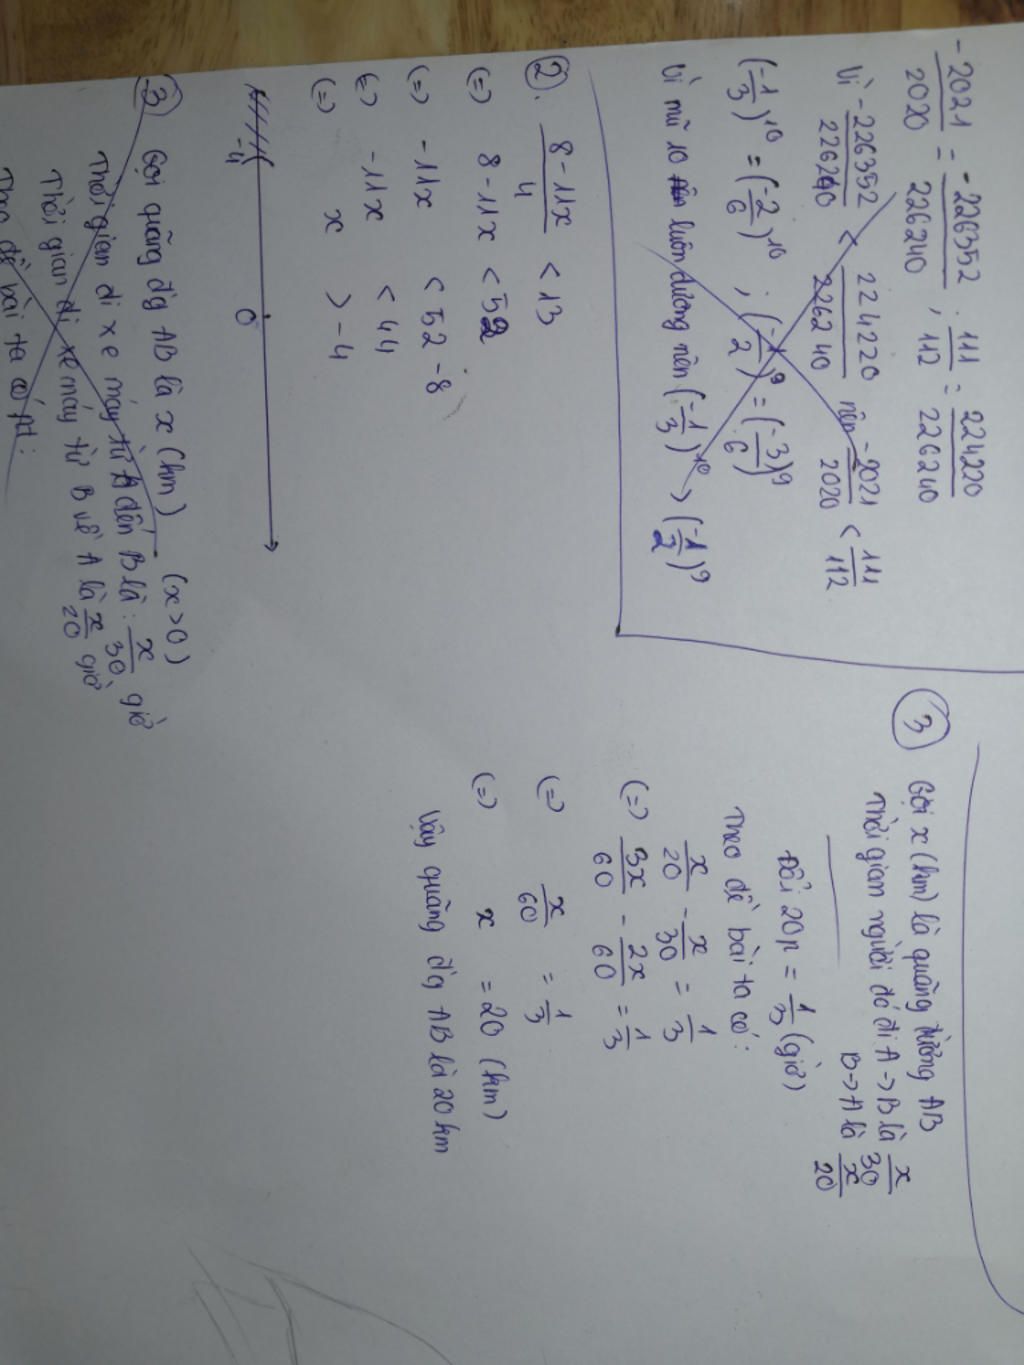 -2021/2020 = -226352/226240 ; 111/112 = 224220/226240
Vì -226352/226240 < 224220/226240 nên -2021/2020 < 111/112
(-1/3)^10 = (-2/6)^10 ; (-1/2)^9 = (-3/6)^9
Vì mũ 10 luôn dương nên (-1/3)^10 > (-1/2)^9
2. (8-11x)/4 < 13
(=) 8-11x < 52
(=) -11x < 52-8
(=) -11x < 44
(=) x > -4
-4 0
3 Gọi quãng đg AB là x (km) (x>0)
Thời gian đi xe máy từ A đến B là: x/30 giờ
Thời gian đi xe máy từ B về A là x/20 giờ
Theo đề bài ta có pt:
3 Gọi x (km) là quãng đường AB
Thời gian người đó đi A->B là x/30
B->A là x/20
Đổi 20p = 1/3 (giờ)
Theo đề bài ta có:
x/20 - x/30 = 1/3
(=) 3x/60 - 2x/60 = 1/3
(=) x/60 = 1/3
(=) x = 20 (km)
Vậy quãng đg AB là 20 km